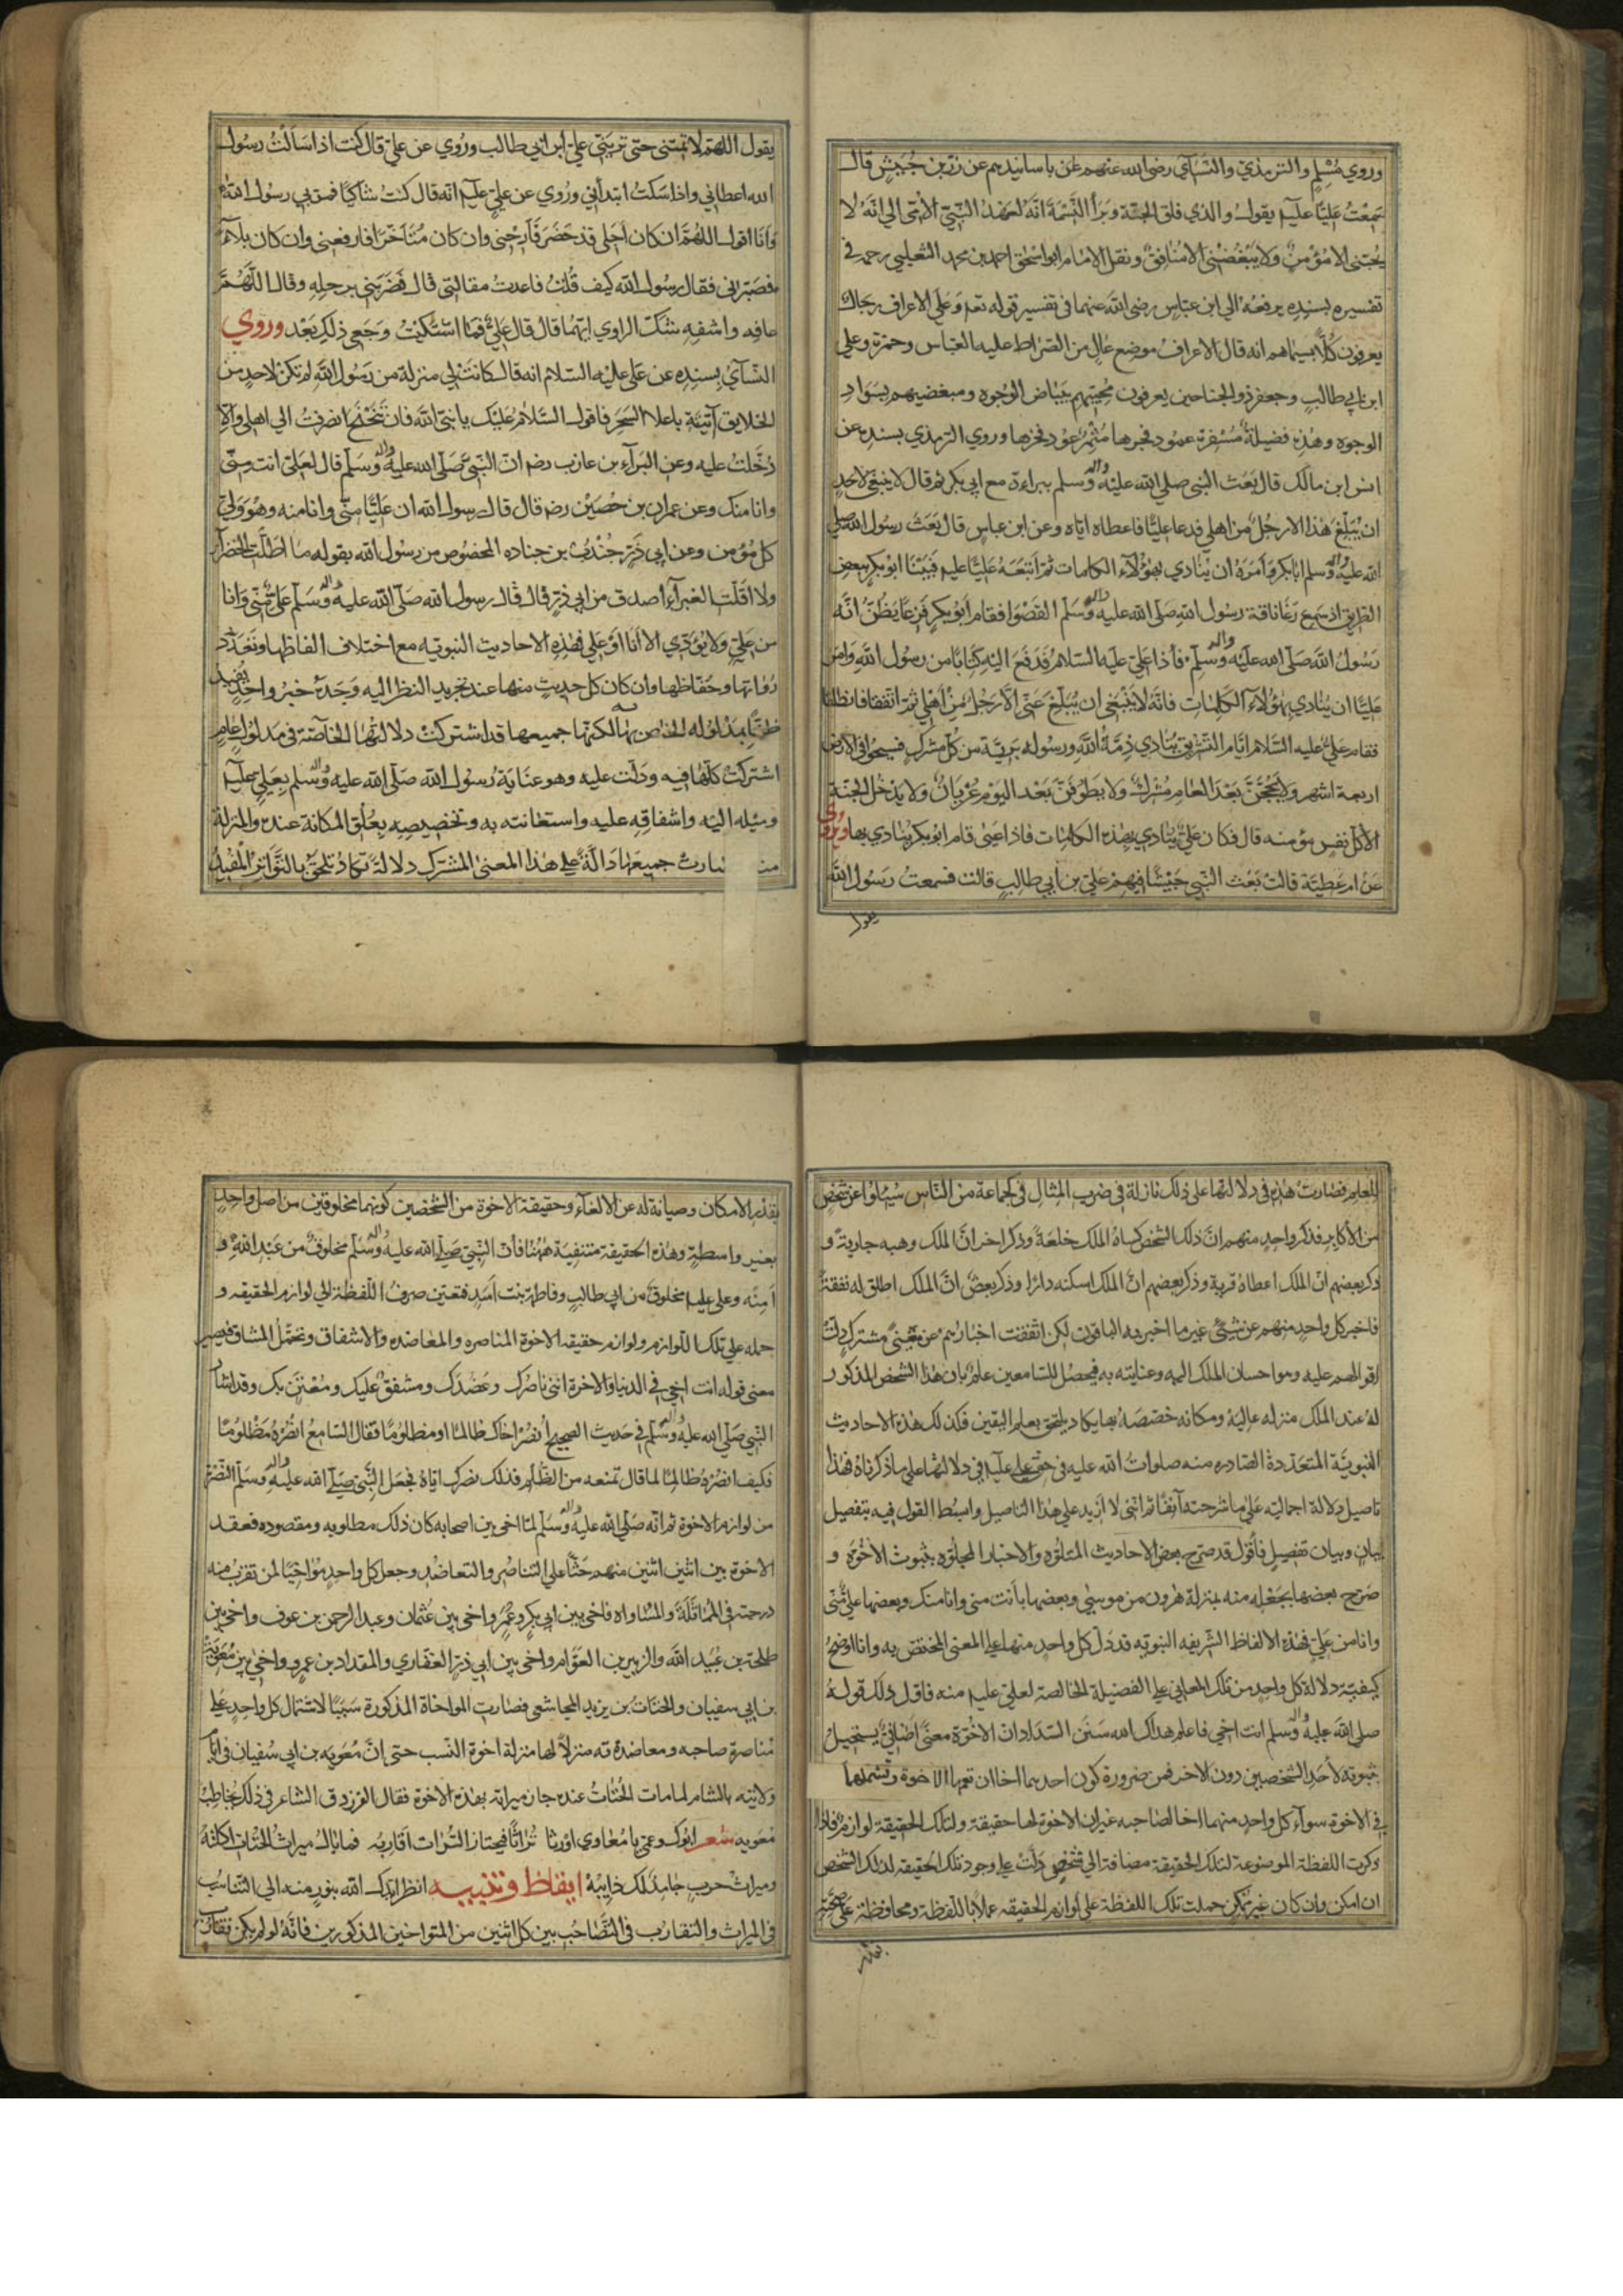 وروي مسلم والترمذي والنسآئي رضي الله عنهم باسانيدهم عن زر بن حبيش قال
سمعت عليا عليه يقول والذي فلق الحبة وبرأ النسمة انه لعهد النبي الامي الي انه لا
يحبني الا مؤمن ولا يبغضني الا منافق ونقل الامام ابو اسحق احمد بن محمد الثعلبي رحمه في
تفسيره بسنده يرفعه الي ابن عباس رضي الله عنهما في تفسير قوله تعم وعلي الاعراف رجال
يعرفون كلا بسيماهم انه قال الاعراف موضع عال من الصراط عليه العباس وحمزة وعلي
ابن ابي طالب وجعفر ذو الجناحين يعرفون محبيهم ببياض الوجوه ومبغضيهم بسواد
الوجوه وهذه فضيلة مسفرة عمود فجرها مثمر عود فخرها وروي الترمذي بسنده عن
انس ابن مالك قال بعث النبي صلي الله عليه واله وسلم ببراءة مع ابي بكر ثم قال لا ينبغي لاحد
ان يبلغ هذا الا رجل من اهلي فدعا عليا فاعطاه اياه وعن ابن عباس قال بعث رسول الله صلي
الله عليه واله وسلم ابا بكر وأمره ان ينادي بهؤلآء الكلمات ثم أتبعه عليا عليه فبينا ابو بكر ببعض
الطريق اذ سمع رغا ناقة رسول الله صلي الله عليه واله وسلم القصوا فقام ابو بكر فزعا يظن انه
رسول الله صلي الله عليه واله وسلم فأذا علي عليه السلام فدفع اليه كتابا من رسول الله وامر
عليا ان ينادي بهؤلآء الكلمات فانه لا ينبغي ان يبلغ عني الا رجل من اهلي ثم اتفقا فانطلقا
فقام علي عليه السلام ايام التشريق ينادي ذمة الله ورسوله برية من كل مشرك فسيحوا في الارض
اربعة اشهر ولا يحجن بعد العام مشرك ولا يطوفن بعد اليوم عريان ولا يدخل الجنة
الا كل نفس مؤمنه قال فكان علي ينادي بهذه الكلمات فاذا اعيي قام ابو بكر ينادي بها وروي
عن ام عطية قالت بعث النبي جيشا فيهم علي بن ابي طالب قالت فسمعت رسول الله
يقول
يقول اللهم لا تمتني حتي تريني علي ابن ابي طالب وروي عن علي قال كنت اذا سألت رسول
الله اعطاني واذا سكت ابتدأني وروي عن علي عليه انه قال كنت شاكيا فمر بي رسول الله
وأنا اقول اللهم ان كان أجلي قد حضر فأرحني وان كان متأخرا فارفعني وان كان بلآء
فصبرني فقال رسول الله كيف قلت فاعدت مقالتي قال فضربني برجله وقال اللهم
عافه واشفه شك الراوي ايهما قال قال علي فما اشتكيت وجعي ذلك بعد وروي
النسآئي بسنده عن علي عليه السلام انه قال كانت لي منزلة من رسول الله لم تكن لاحد من
الخلايق آتيه باعلا السحر فاقول السلام عليك يا نبي الله فان تنحنح انصرفت الي اهلي والا
دخلت عليه وعن البرآء بن عازب رضه ان النبي صلي الله عليه واله وسلم قال لعلي انت مني
وانا منك وعن عمران بن حصين رضه قال قال رسول الله ان عليا مني وانا منه وهو ولي
كل مؤمن وعن ابي ذر جندب بن جناده المخصوص من رسول الله بقوله ما اظلت الخضرآ
ولا اقلت الغبرآء اصدق من ابي ذر قال قال رسول الله صلي الله عليه واله وسلم علي مني وانا
من علي ولا يؤدي الا انا او علي فهذه الاحاديث النبويه مع اختلاف الفاظها وتعدد
رواتها وحفاظها وان كان كل حديث منها عند تجريد النظر اليه وحده خبر واحد يفيد
ظنا بمدلوله الخاص به لكنها جميعها قد اشتركت دلالتها الخاصة في مدلول عام
اشتركت كلها فيه ودلت عليه وهو عناية رسول الله صلي الله عليه واله وسلم بعلي عليه
وميله اليه واشفاقه عليه واستعانته به وتخصيصه بعلو المكانة عنده والمنزلة
منه صارت جميعها دالة علي هذا المعني المشترك دلالة تكاد تلحق بالتواتر المفيد
للعلم فصارت هذه في دلالتها علي ذلك نازلة في ضرب المثال في كجماعة من الناس سئلوا عن شخص
من الأكابر فذكر واحد منهم ان ذلك الشخص كساه الملك خلعة وذكر اخر ان الملك وهبه جارية و
ذكر بعضهم ان الملك اعطاه قرية وذكر بعضهم ان الملك اسكنه دارا وذكر بعض ان الملك اطلق له نفقة
فاخبر كل واحد منهم عن شئ غير ما اخبر به الباقون لكن اتفقت اخبارهم عن معني مشترك دلت
اقوالهم عليه وهو احسان الملك اليه وعنايته به فيحصل للسامعين علم بان هذا الشخص المذكور
له عند الملك منزله عالية ومكانه خصصه بها يكاد يلتحق بعلم اليقين فكذلك هذه الاحاديث
النبوية المتعددة الصادره منه صلوات الله عليه في حق علي عليه في دلالتها علي ما ذكرناه فهذا
تاصيل دلالة اجماليه علي ما شرحته آنفا ثم انني لا ازيد علي هذا التاصيل وابسط القول فيه بتفصيل
بيان وبيان تفصيل فأقول قد صرح بعض الاحاديث المتلوه والاخبار المجلوه بثبوت الاخوه و
صرح بعضها بجعله منه بمنزلة هرون من موسي وبعضها بأنت مني وانا منك وبعضها علي مني
وانا من علي فهذه الالفاظ الشريفه النبويه قد دل كل واحد منها علي المعني المختص به وانا اوضح
كيفيته دلالة كل واحد من تلك المعاني علي الفضيلة الخالصة لعلي عليه منه فاقول ذلك قوله
صلي الله عليه واله وسلم انت اخي فاعلم هداك الله سنن السداد ان الاخوة معني اضافي يستحيل
ثبوته لأحد الشخصين دون الاخر فمن ضرورة كون احدهما اخا ان تعم الاخوة وتشملهما
في الاخوة سوآء كل واحد منهما اخا لصاحبه غير ان الاخوة لها حقيقة ولتلك الحقيقة لوازم فاذا
ذكرت اللفظة الموضوعة لتلك الحقيقة مضافة الي شخص دلت علي وجود تلك الحقيقه لذلك الشخص
ان امكن وان كان غير ممكن حملت تلك اللفظة علي لوازم الحقيقه عملا باللفظة ومحافظة علي صحته
بقدر
بقدر الامكان وصيانة له عن الالغآء وحقيقة الاخوة من الشخصين كونهما مخلوقين من اصل واحد
بغير واسطة وهذه الحقيقة منتفية ههنا فأن النبي صلي الله عليه واله وسلم مخلوق من عبد الله و
آمنه وعلي عليه مخلوق من ابي طالب وفاطمة بنت اسد فتعين صرف اللفظة الي لوازم الحقيقه و
حمله علي تلك اللوازم ولوازم حقيقه الاخوة المناصره والمعاضده والاشفاق وتحمل المشاق فيصير
معني قوله انت اخي في الدنيا والاخرة انني ناصرك وعضدك ومشفق عليك ومعتن بك وقد اشار
النبي صلي الله عليه واله وسلم في حديث الصحيح انصر اخاك ظالما او مظلوما فقال السامع انصره مظلوما
فكيف انصره ظالما لما قال تمنعه من الظلم فذلك نصرك اياه فجعل النبي صلي الله عليه واله وسلم النصرة
من لوازم الاخوة ثم انه صلي الله عليه واله وسلم لما اخي بين اصحابه كان ذلك مطلوبه ومقصوده فعقد
الاخوة بين اثنين اثنين منهم حثا علي التناصر والتعاضد وجعل كل واحد مؤاخيا لمن تقرب منه
درجته في المماثلة والمساواه فاخي بين ابي بكر وعمر واخي بين عثمان وعبد الرحمن بن عوف واخي بين
طلحة بن عبيد الله والزبير بن العوام واخي بين ابي ذر الغفاري والمقداد بن عمرو واخي بين معوية
بن ابي سفيان والحتات بن يزيد المجاشعي فصارت المواخاة المذكورة سببا لاشتمال كل واحد علي
مناصرة صاحبه ومعاضدته منزلا لها منزلة اخوة النسب حتي إن معويه بن ابي سفيان في ايام
ولايته بالشام لما مات الحتات عنده حاز ميراثه بهذه الاخوة فقال الفرزدق الشاعر في ذلك يخاطب
معويه شعر ابوك وعمي يا معاوي اورثا تراثا فيحتاز التراث اقاربه فما بال ميراث الحتات اكلته
وميراث حرب جامد لك ذايبه ايقاظ وتنبيه انظر ايدك الله بنور منه الي التناسب
في الميراث والتقارب في التصاحب بين كل اثنين من المتواخين المذكورين فانه لو لم يكن تقارب